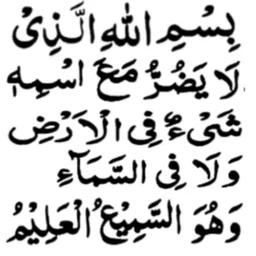 بِسْمِ اللهِ الَّذِيْ
لَا يَضُرُّ مَعَ اسْمِهٖ
شَيْءٌ فِي الْاَرْضِ
وَلَا فِي السَّمَآءِ
وَهُوَ السَّمِيْعُ الْعَلِيْمُ